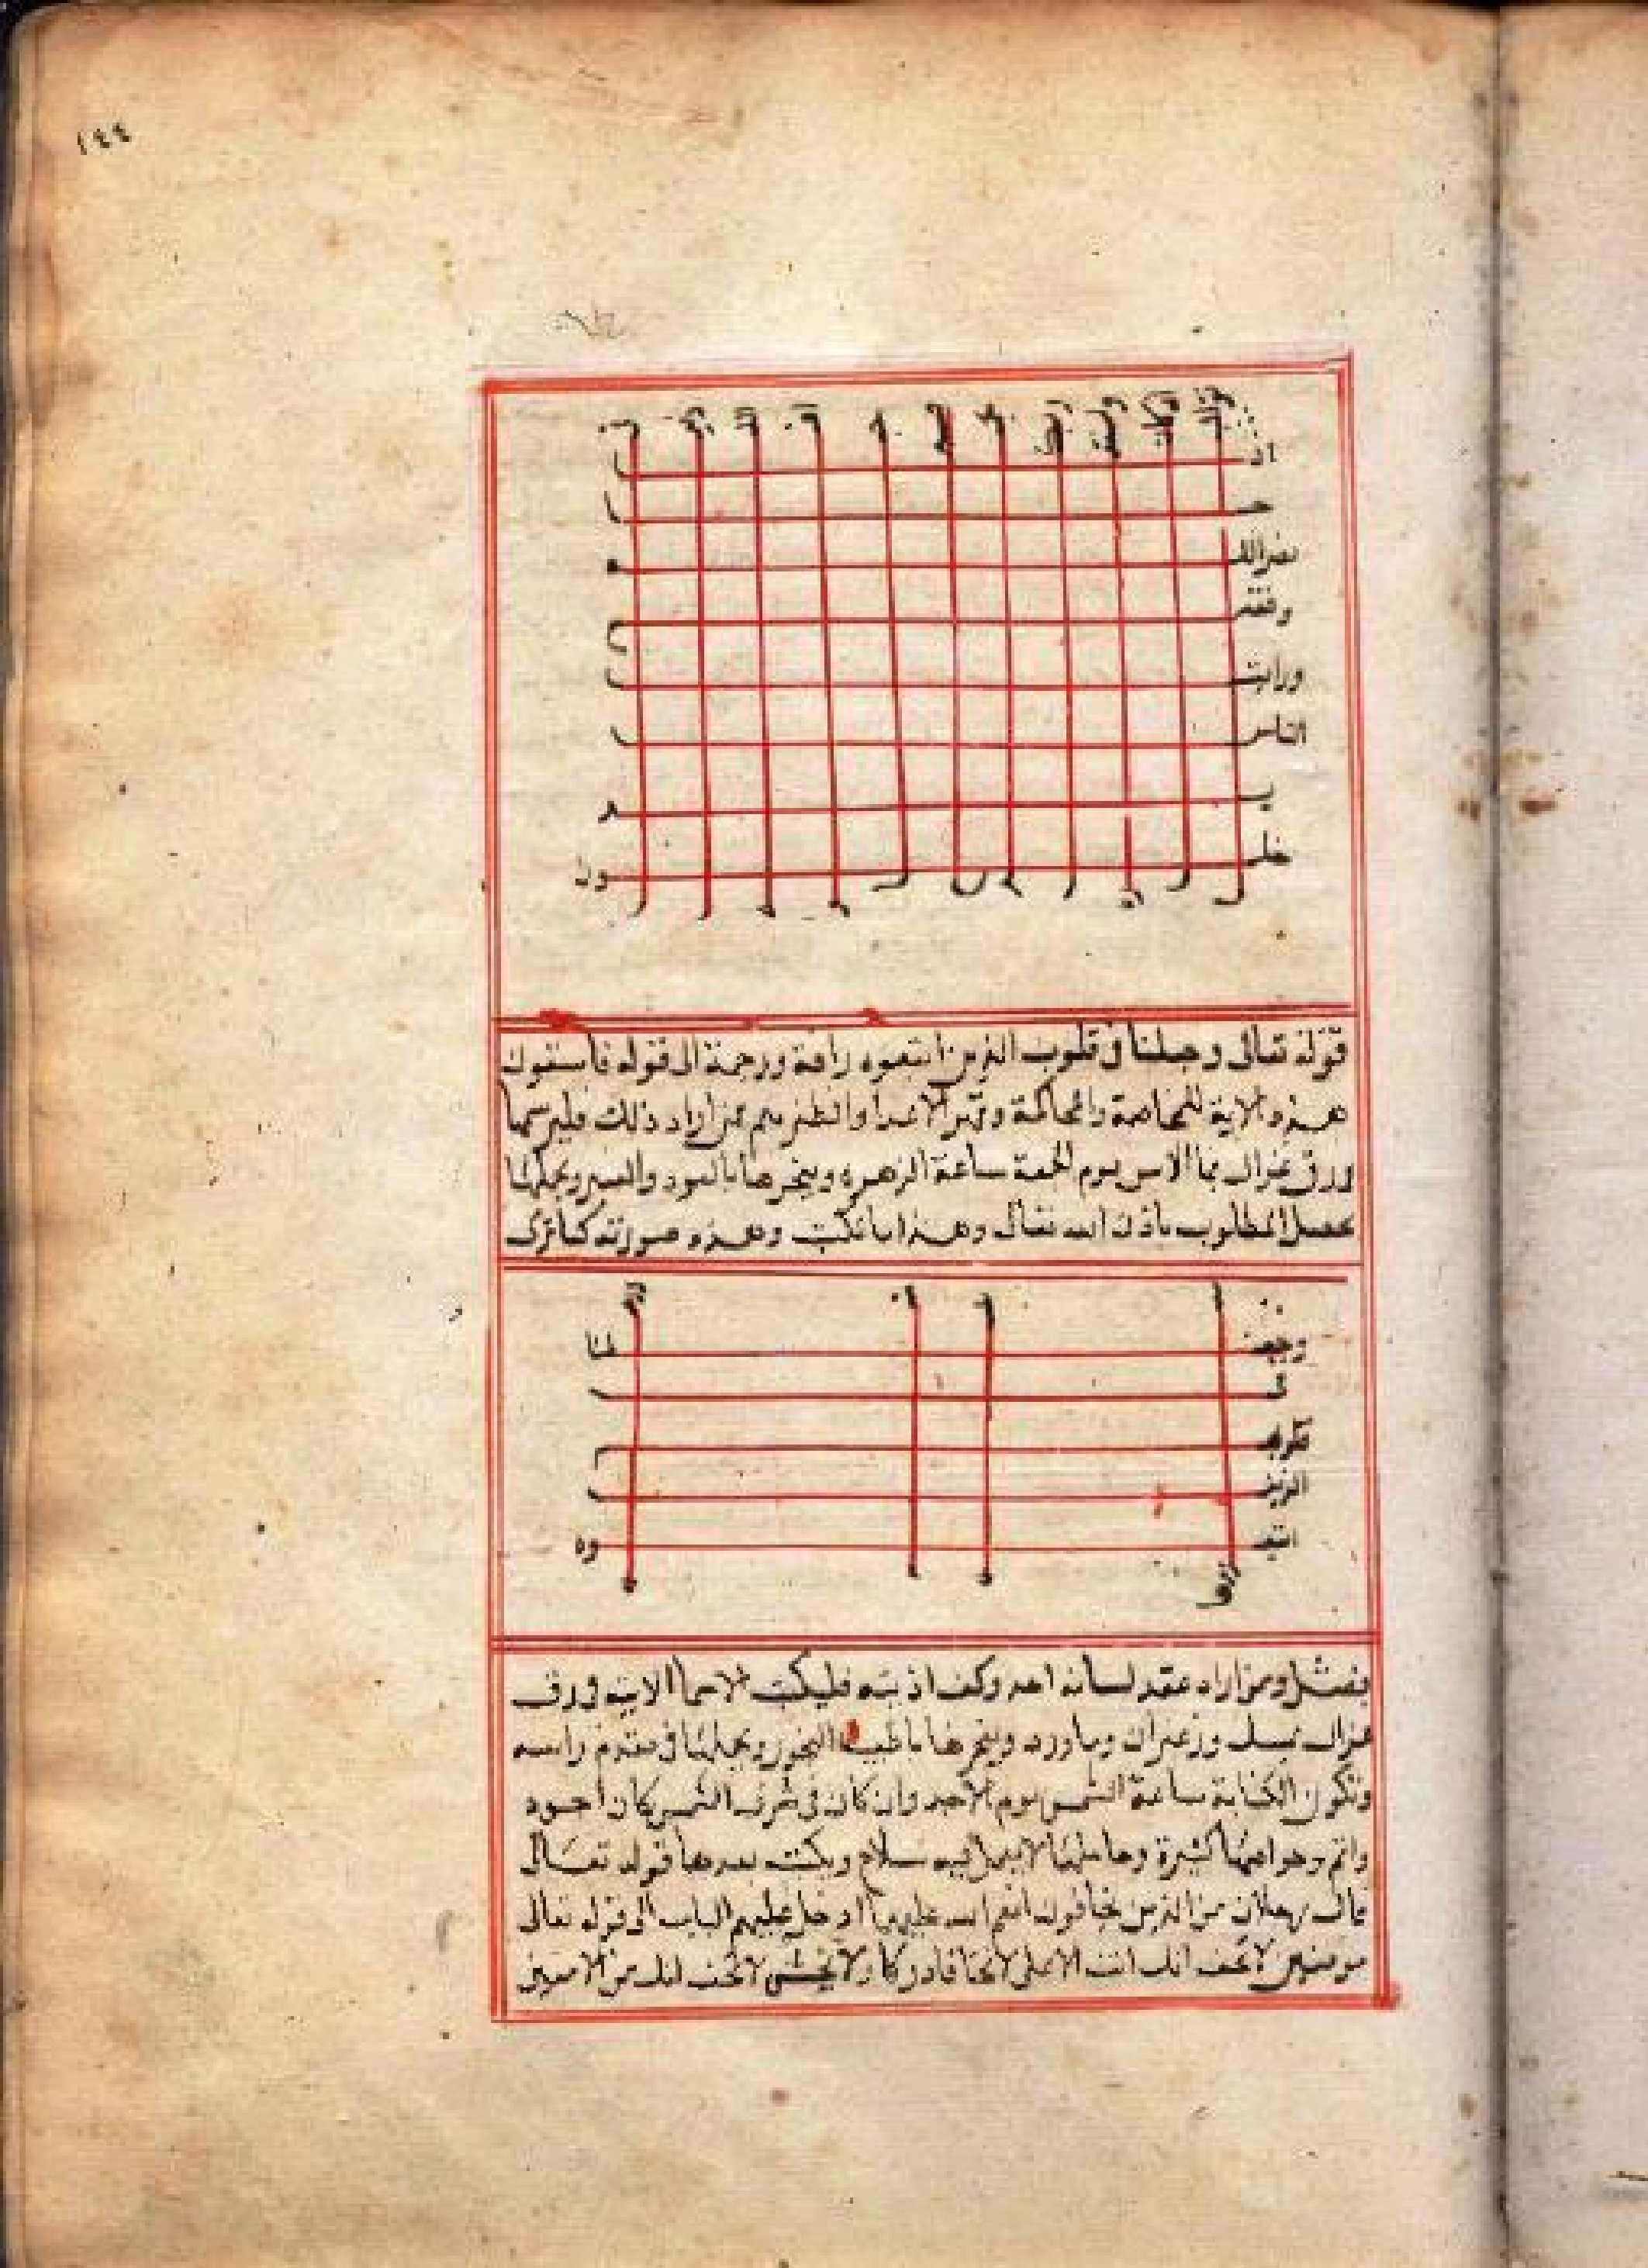 ١٤٤
اذ
نصرالله
ورايت
الناس
يد
خلون
قوله تعالى وجعلنا فى قلوب الذين اتبعوه رافة ورحمة الى قوله فاسقون
هذه الاية للمخاصمة والمحاكمة وقهر الاعدا والظفر بهم فمن اراد ذلك فليرسمها
ورق غزال بما الاس يوم الجمعة ساعة الزهره ويبخرها بالعود والعنبر ويحملها
يحصل المطلوب باذن الله تعالى وهذا ما تكتب وهذه صورته كما ترى
وجعلنا
فى
قلوب
الذين
اتبعوه
فصل ومن اراد عقد لسان احد وكف اذيته فليكتب الاسما الاتيه فى رق
غزال بمسك وزعفران وماورد ويبخرها باطيب البخور ويجعلها فى مقدم راسه
وتكون الكتابة ساعة الشمس يوم الاحد وان كان فى شرف الشمس كان اجود
واتم وخواصها كثيرة وحاملها لا يعمل فيه سلاح ويكتب بعدها قوله تعالى
قال رجلان من الذين يخافون انعم الله عليهما ادخلوا عليهم الباب الى قوله تعالى
مومنين لا تخف انك انت الاعلى لا تخاف دركا ولا تخشى لا تخف انك من الامنين